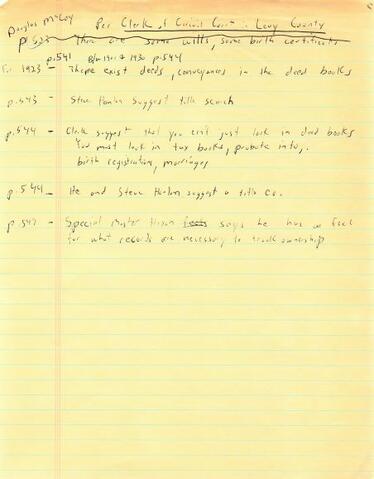 Douglas McCoy
Per Clerk of Circuit Court in Levy County
p.523 There are some wills, some birth certificates
p.541 B/w 1901 + 1930 p.544
For 1923 - There exist deeds, conveyances in the deed books
p.543 - Steve Hanlon suggest title search
p.544 - Clerk suggest that you can't just look in deed books
You must look in tax books, probate info,
birth registration, marriages
p.544 - He and Steve Hanlon suggest a title co.
p.547 - Special Master Hixon says he has a feel
for what records are necessary to track ownership